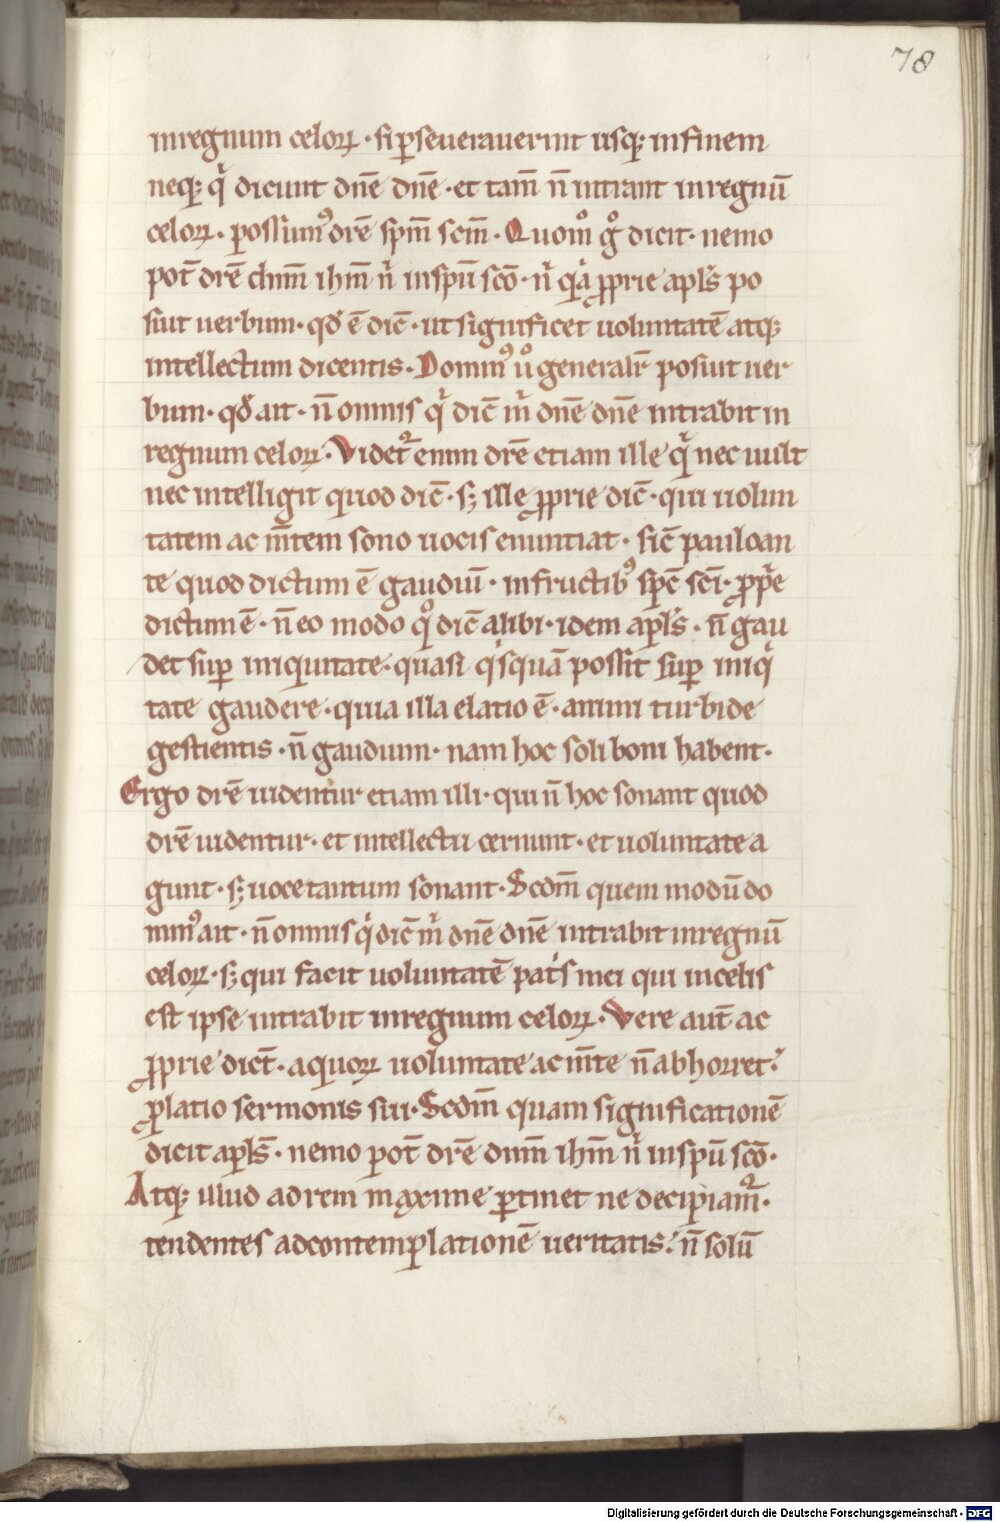 78
inregnum celoꝝ · si ꝑseuerauerint usq; in finem
neq; qͥ dicunt dn̄e dn̄e · et tam̄ n̄ intrant inregnū
celoꝝ · possumꝰ dr̄e sp̄m sc̄m · Quom̊ gͦ dicit · nemo
pot̄ dr̄e dn̄m ihm̄ nͥ in sp̄u sc̄o · nͥ qͥa ꝓprie apl̄s po
siut uerbum · qđ ē dic̄ · ut significet uoluntatē atq;
intellectum dicentis · Dominꝰ uͦ generalr̄ posiut uer
bum · qđ ait · n̄ omnis qͥ dic̄ mͥ dn̄e dn̄e intrabit in
regnum celoꝝ · Videt᷑ enim dr̄e etiam ille qͥ nec uult
nec intelligit quod dic̄ · s; ille ꝓprie dic̄ · qui uolun
tatem ac m̄tem sono uocis enuntiat · sic̄ pauloan
te quod dictum ē gaudiū · in fructibꝰ sp̄c sc̄i · ꝓpͥe
dictum ē · n̄ eo modo qͦ dic̄ alibi · idem apl̄s · n̄ gau
det suꝑ iniquitate · quasi qͥsquā possit suꝑ iniqͥ
tate gaudere · quia illa elatio ē · animi turbide
gestientis · n̄ gaudium · nam hoc soli boni habent ·
Ergo dr̄e uidentur etiam illi · qui n̄ hoc sonant quod
dr̄e uidentur · et intellectu cernunt · et uoluntate a
gunt · s; uoce tantum sonant · Scd̄m quem modū do
minꝰ ait · n̄ omnis qͥ dic̄ mͥ dn̄e dn̄e intrabit inregnū
celoꝝ · s; qui facit uoluntatē patͥs mei qui incelis
est ipse intrabit inregnum celoꝝ · Vere aut̄ ac
ꝓprie dict̄ · aquoꝝ uoluntate ac m̄te n̄ abhorret ·
ꝓlatio sermonis sui · Scd̄m quam significationē
dicit apl̄s · nemo pot̄ dr̄e dnm̄ ihm̄ nͥ in sp̄u sc̄o ·
Atq; illud ad rem maxime ꝑtinet ne decipiam᷑ ·
tendentes adcontemplationē ueritatis · n̄ solū
Digitalisierung gefördert durch die Deutsche Forschungsgemeinschaft - DFG